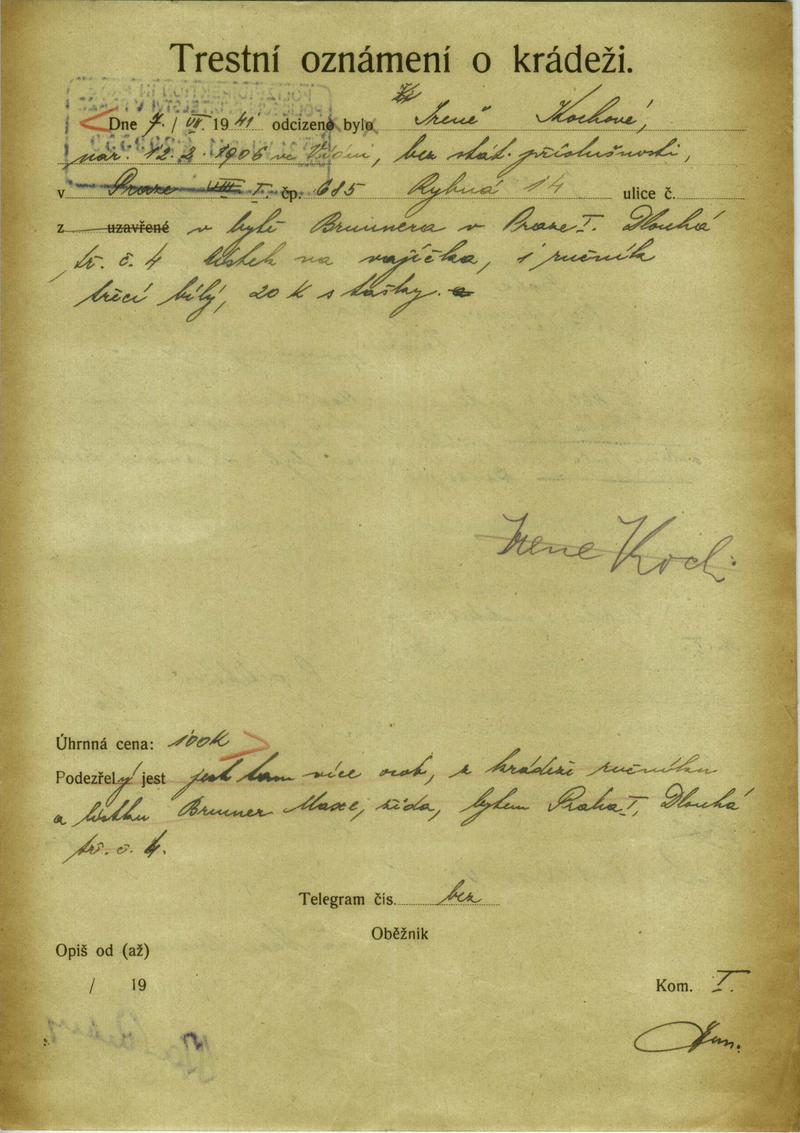 Trestní oznámení o krádeži.
Dne 7. / VII. 1941 odcizeno bylo Ireně Kochové,
nar. 12.2.1906 ve Vídni, bez stát. příslušnosti,
v Praze VIII I. čp. 685 Rybná 14 ulice č.
z uzavřené v bytě Brunnera v Praze I. Dlouhá
tř. č. 4 lístek na vajíčka, 1 ručník
třecí bílý, 20 K s tašky.
Irene Koch
Úhrnná cena: 100K
Podezřelý jest jest tam více osob, z krádeže ručníku
a lístku Brunner Maxe, žida, bytem Praha I, Dlouhá
tř. č. 4.
Telegram čís. bez
Oběžník
Opiš od (až)
/ 19
Kom. I.